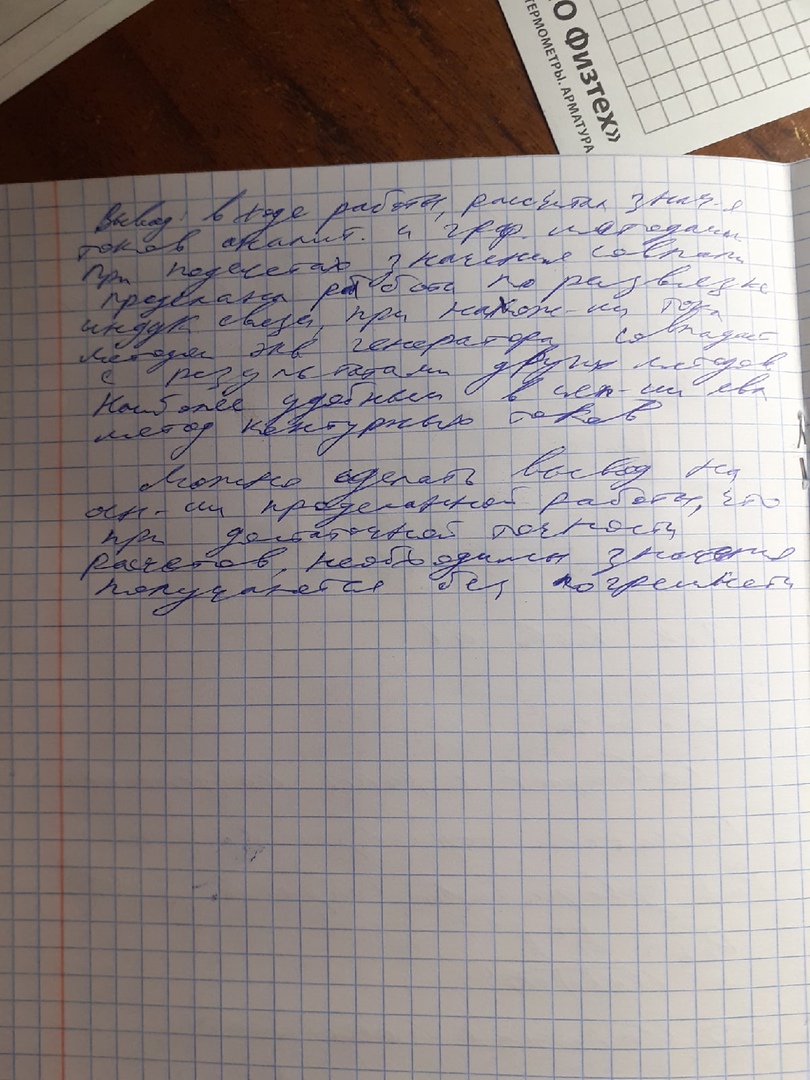 О Физтех»
ТЕРМОМЕТРЫ. АРМАТУРА
Вывод: в ходе работы, рассчитал знач-я
токов аналит. и граф. методами
При подсчетах значения совпали
проделана работа по развязке
индук связи, при нахож-ии тока
методом экв генератора совпадает
с результатами других методов
Наиболее удобным
метод контурных токов
Можно сделать вывод на
осн-ии проделанной работы, что
при достаточной точности
расчетов, необходимы значения
получаются без погрешности